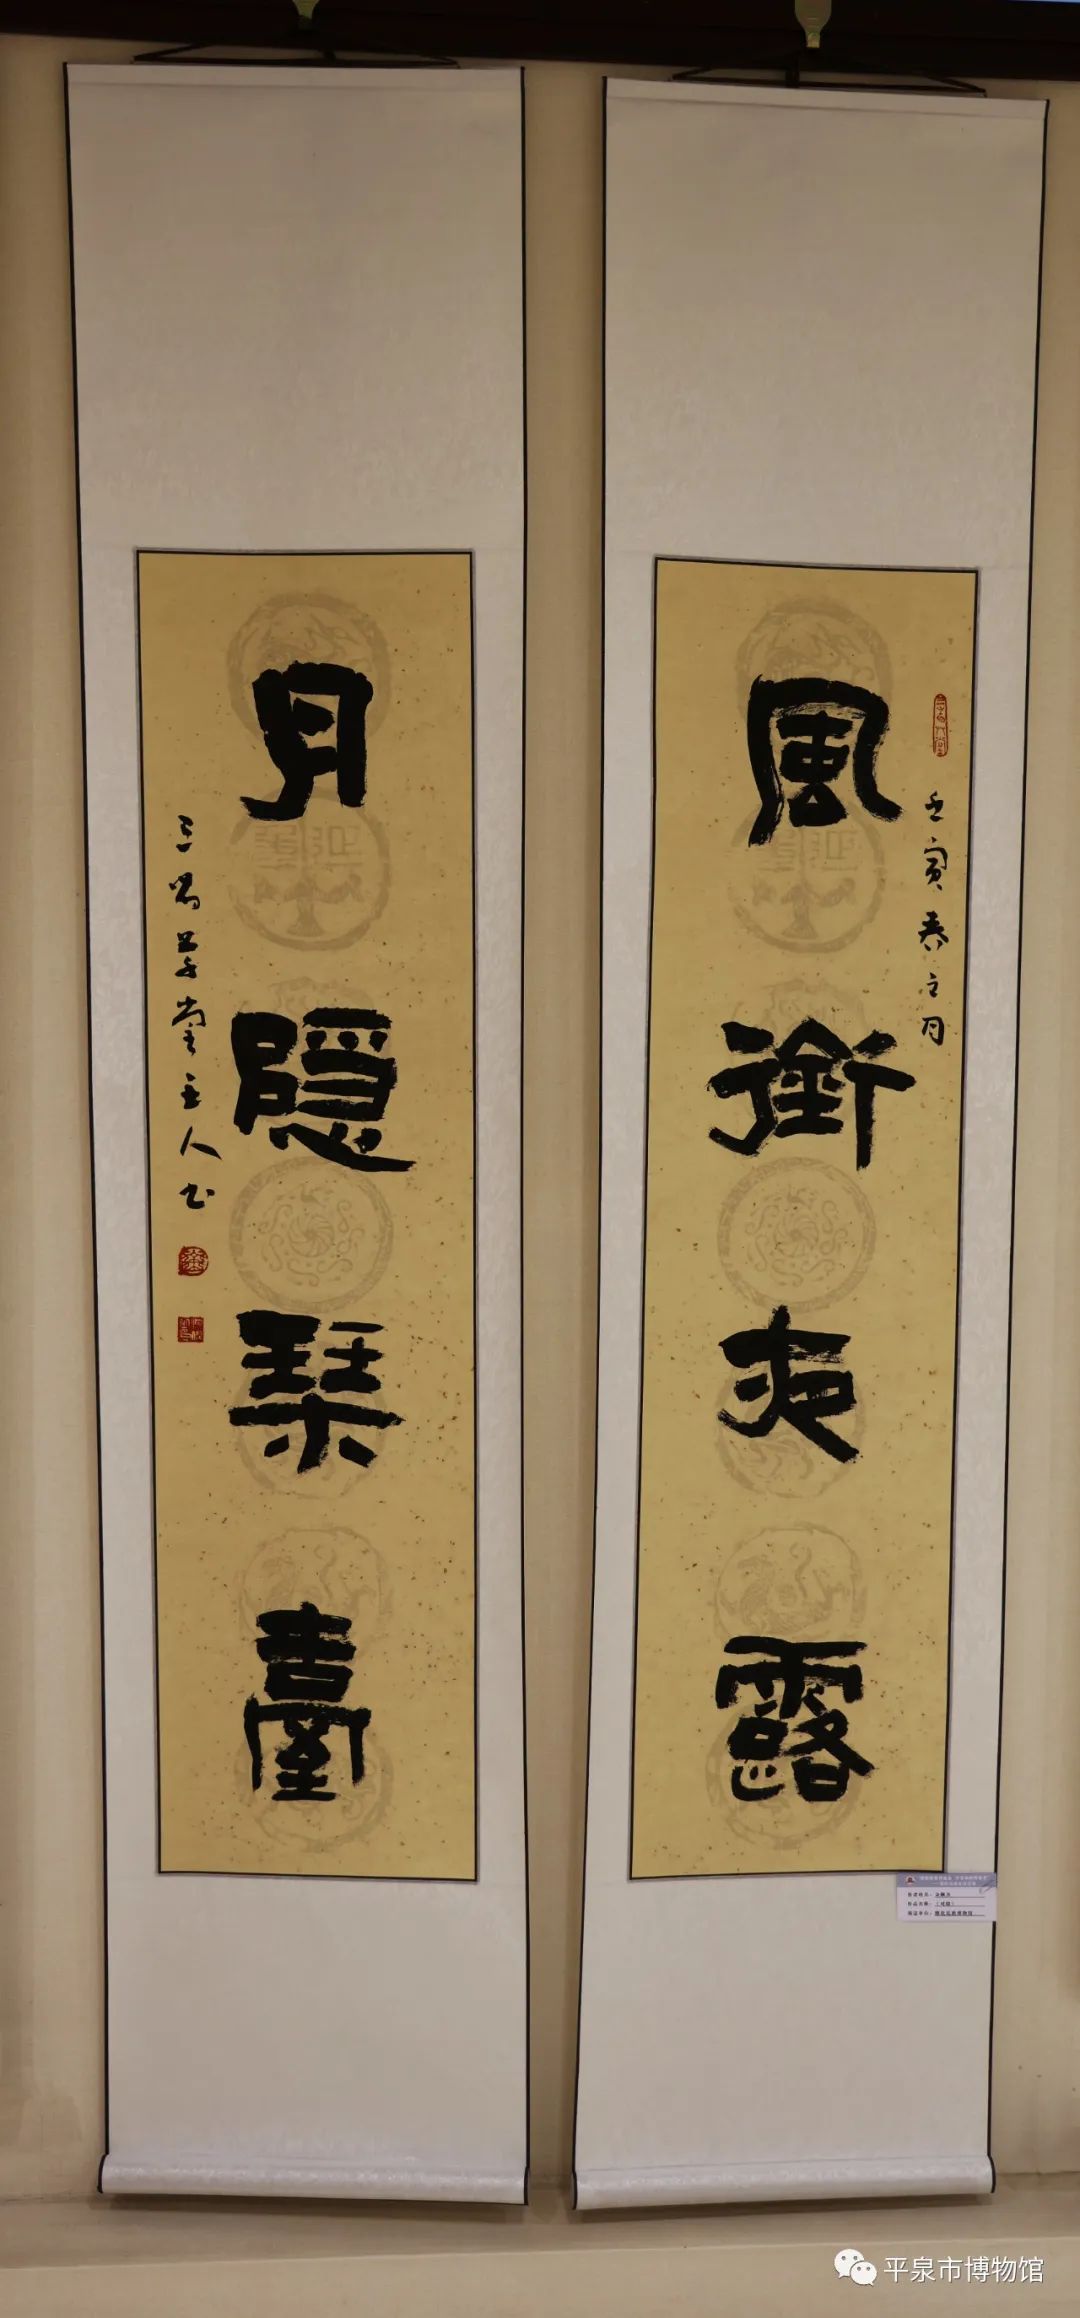 風銜夜露
壬寅春之月
月隱琴臺
三鳴草堂主人书
平泉市博物馆